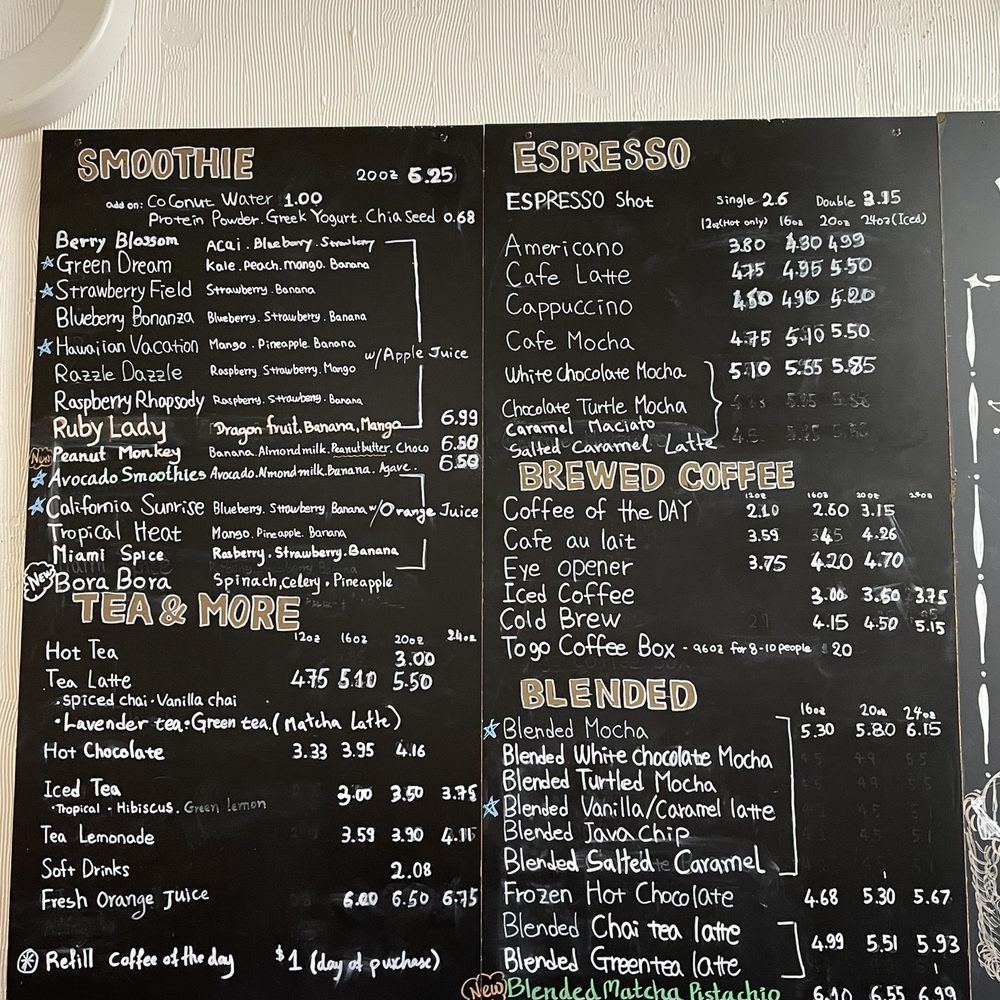 SMOOTHIE
20oz 6.25
add on: Coconut Water 1.00
Protein Powder. Greek Yogurt. Chia Seed 0.68
Berry Blossom Acai. Blueberry. Strawberry
Green Dream Kale. Peach. Mango. Banana
Strawberry Field Strawberry. Banana
Blueberry Bonanza Blueberry. Strawberry. Banana
Hawaiian Vacation Mango. Pineapple. Banana
w/Apple Juice
Razzle Dazzle Raspberry Strawberry. Mango
Raspberry Rhapsody Raspberry. Strawberry. Banana
Ruby Lady Dragon fruit. Banana, Mango 6.99
New Peanut Monkey Banana. Almond milk. Peanut butter. Choco 6.50
Avocado Smoothies Avocado. Almond milk. Banana. Agave. 6.50
California Sunrise Blueberry. Strawberry. Banana w/Orange Juice
Tropical Heat Mango. Pineapple. Banana
Miami Spice Rasberry. Strawberry. Banana
New Bora Bora Spinach, Celery. Pineapple
TEA & MORE
12oz 16oz 20oz 24oz
Hot Tea 3.00
Tea Latte 4.75 5.10 5.50
·Spiced chai·Vanilla chai
·Lavender tea·Green tea.(Matcha Latte)
Hot Chocolate 3.33 3.95 4.16
Iced Tea 3.00 3.50 3.75
·Tropical - Hibiscus. Green lemon
Tea Lemonade 3.59 3.90 4.11
Soft Drinks 2.08
Fresh Orange Juice 6.00 6.50 6.75
Refill Coffee of the day $1 (day of purchase)
ESPRESSO
ESPRESSO Shot Single 2.6 Double 3.15
12oz(Hot only) 16oz 20oz 24oz(Iced)
Americano 3.80 4.30 4.99
Cafe Latte 4.75 4.95 5.50
Cappuccino 4.90 5.20
Cafe Mocha 4.75 5.10 5.50
White Chocolate Mocha 5.10 5.55 5.85
Chocolate Turtle Mocha
Caramel Maciato
Salted Caramel Latte
BREWED COFFEE
12oz 16oz 20oz 24oz
Coffee of the DAY 2.10 2.60 3.15
Cafe au lait 3.59 4.26
Eye opener 3.75 4.20 4.70
Iced Coffee 3.00 3.50 3.75
Cold Brew 4.15 4.50 5.15
To go Coffee Box - 96oz for 8-10 people $20
BLENDED
16oz 20oz 24oz
Blended Mocha 5.30 5.80 6.15
Blended White chocolate Mocha
Blended Turtled Mocha
Blended Vanilla/Caramel latte
Blended Java chip
Blended Salted Caramel
Frozen Hot Chocolate 4.68 5.30 5.67
Blended Chai tea latte
4.99 5.51 5.93
Blended Green tea latte
New Blended Matcha Pistachio 6.10 6.55 6.99